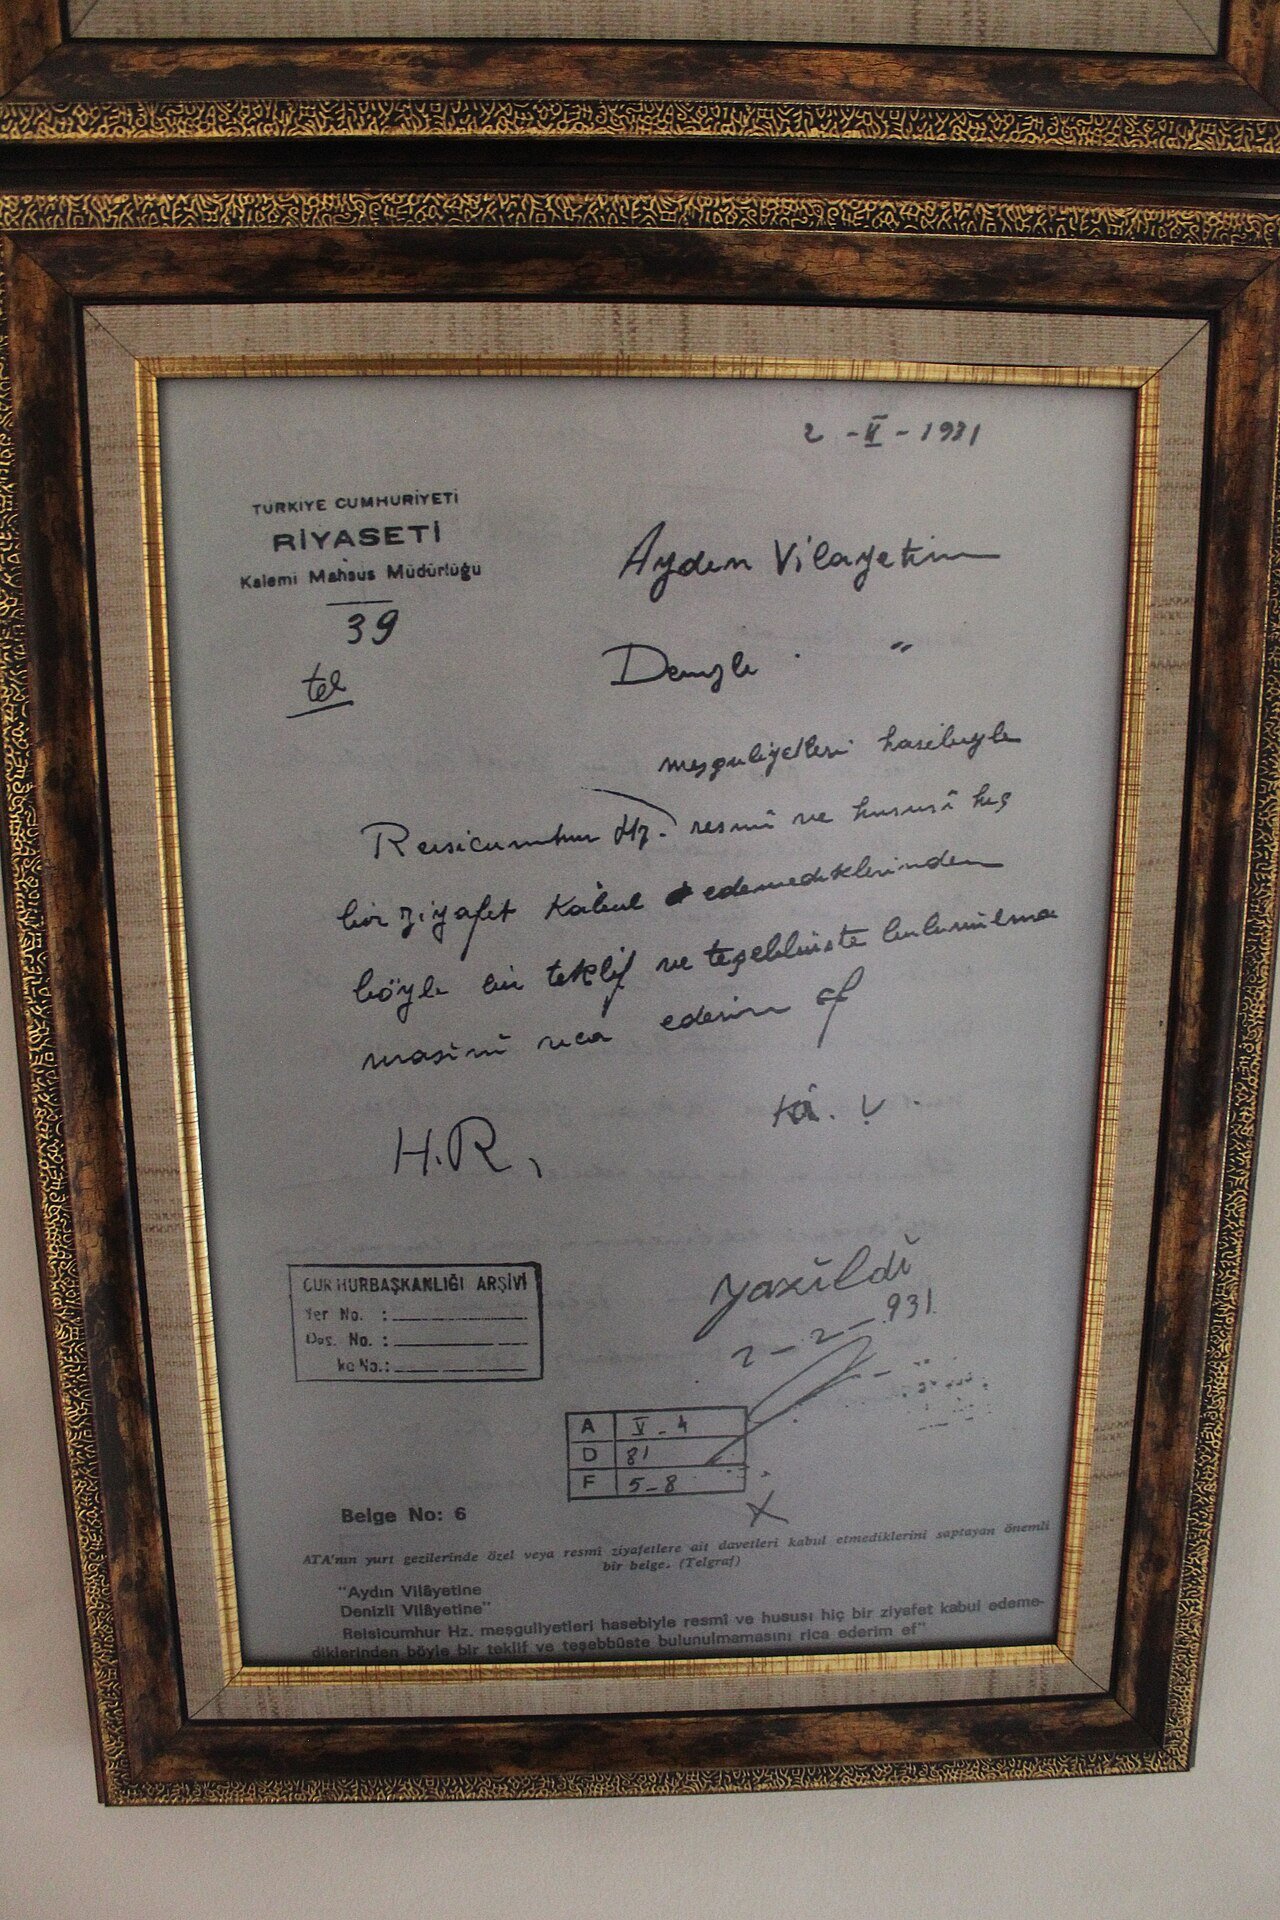 2 - II - 1931
TÜRKİYE CUMHURİYETİ
RİYASETİ
Kalemi Mahsus Müdürlüğü
39
tel
Aydın Vilayetine
Denizli "
meşguliyetleri hasebiyle
Reisicumhur Hz. resmî ve hususî hiç
bir ziyafet kabul edemediklerinden
böyle bir teklif ve teşebbüste bulunulma
masını rica ederim ef
Kâ. V.
H.R.
CUMHURBAŞKANLIĞI ARŞİVİ
Yer No. :
Dos. No. :
No.:
yazıldı
2-2-931
A V-4
D 81
F 5-8
Belge No: 6
ATA'nın yurt gezilerinde özel veya resmî ziyafetlere ait davetleri kabul etmediklerini saptayan önemli
bir belge. (Telgraf)
"Aydın Vilâyetine
Denizli Vilâyetine"
Reisicumhur Hz. meşguliyetleri hasebiyle resmî ve hususî hiç bir ziyafet kabul edeme-
diklerinden böyle bir teklif ve teşebbüste bulunulmamasını rica ederim ef"